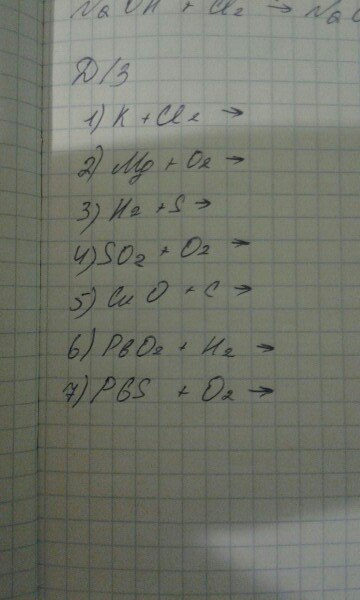 NaOH + Cl2 → Na
Д/З
1) K + Cl2 →
2) Mg + O2 →
3) H2 + S →
4) SO2 + O2 →
5) CuO + C →
6) PbO2 + H2 →
7) PbS + O2 →